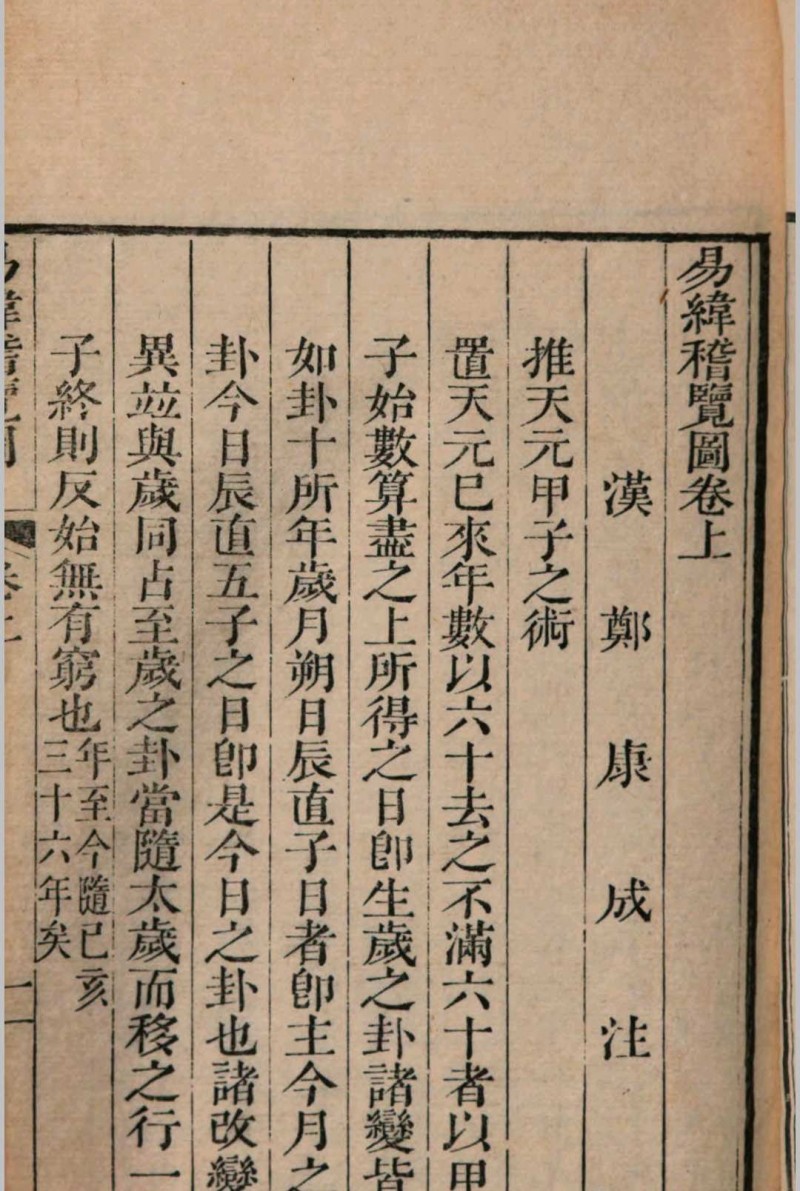 易緯稽覽圖卷上
漢鄭康成注
推天元甲子之術
置天元已來年數以六十去之不滿六十者以甲
子始數算盡之上所得之日卽生歲之卦諸變皆
如卦十所年歲月朔日辰直子日者卽主今月之
卦今日辰直五子之日卽是今日之卦也諸改變
異並與歲同占至歲之卦當隨太歲而移之行一
子終則反始無有窮也年至今隨已亥
三十六年矣
易緯稽覽圖
卷上
一